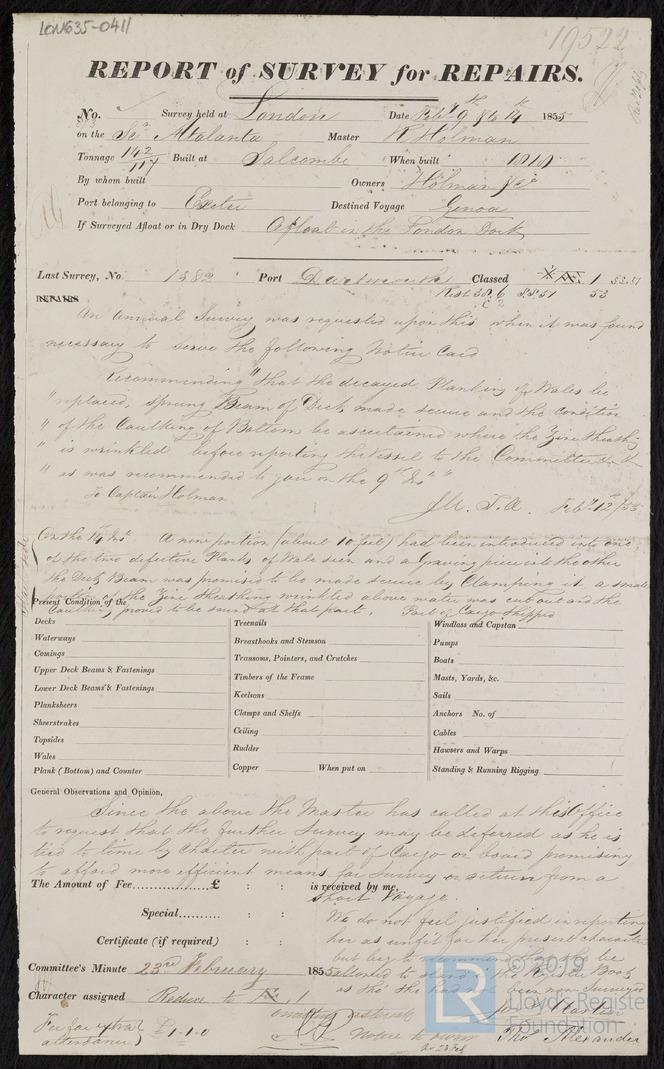 LON635-0411
19522
REPORT of SURVEY for REPAIRS.
No. Survey held at London Date Feby 9th & 14th 1855
on the Sr Atalanta Master R Holman
Tonnage 142/117 Built at Salcombe When built
By whom built Owners Holman & Co
Port belonging to Exeter Destined Voyage Genoa
If Surveyed Afloat or in Dry Dock Afloat in the London Dock
Last Survey, No. 1382 Port Dartmouth Classed 1 53.51
REPAIRS
An Annual Survey was requested upon this when it was found
necessary to serve the following Notice Card
Recommending "that the decayed Planking of Wales be
"replaced, sprung Beam of Deck made secure and the condition
"of the Caulking of Bottom be ascertained where the Zinc Sheathg
"is wrinkled before reporting the Vessel to the Committee
"as was recommended to you on the 9th Inst"
To Captain Holman
Feby 12/55
On the 14 Inst A new portion (about 10 feet) had been introduced into one
of the two defective Planks of Wale seen and a Graving piece into the other
the Deck Beam was promised to be made secure by Clamping it a small
portion of the Zinc Sheathing wrinkled above water was cut out and the
Caulking proved to be sound at that part. Part of Cargo Shipped
Present Condition of the
Decks
Waterways
Comings
Upper Deck Beams & Fastenings
Lower Deck Beams & Fastenings
Planksheers
Sheerstrakes
Topsides
Wales
Plank (Bottom) and Counter
Treenails
Breasthooks and Stemson
Transoms, Pointers, and Crutches
Timbers of the Frame
Keelsons
Clamps and Shelfs
Ceiling
Rudder
Copper When put on
Windlass and Capstan
Pumps
Boats
Masts, Yards, &c.
Sails
Anchors No. of
Cables
Hawsers and Warps
Standing & Running Rigging
General Observations and Opinion,
Since the above the Master has called at this Office
to request that the further Survey may be deferred as he is
tied to time by Charter with part of Cargo on board promising
to afford more efficient means for Survey on return from a
short Voyage.
The Amount of Fee..............£ : : is received by me,
Special......... : :
Certificate (if required) : :
We do not feel justified in reporting
her as unfit for her present character
but beg to recommend be
allowed to stand in the Register Book
as tho' she had not been now Surveyed
Committee's Minute 23rd February 1855
Character assigned Reduce to 1
Fee for extra attendance £1-1-0
Notice to Owner
23 Feb
Martin
Thos Alexander
© 2019
LR
Lloyd's Register
Foundation